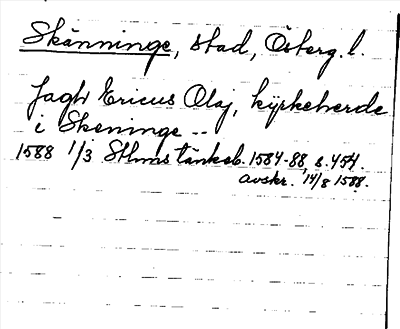 Skänninge, stad, Österg. l.
Jagh Ericus Olaj, kyrkeherde
i Skeninge --
1588 1/3 Sthms tänkeb. 1584-88, s. 454.
avskr. 14/8 1588.